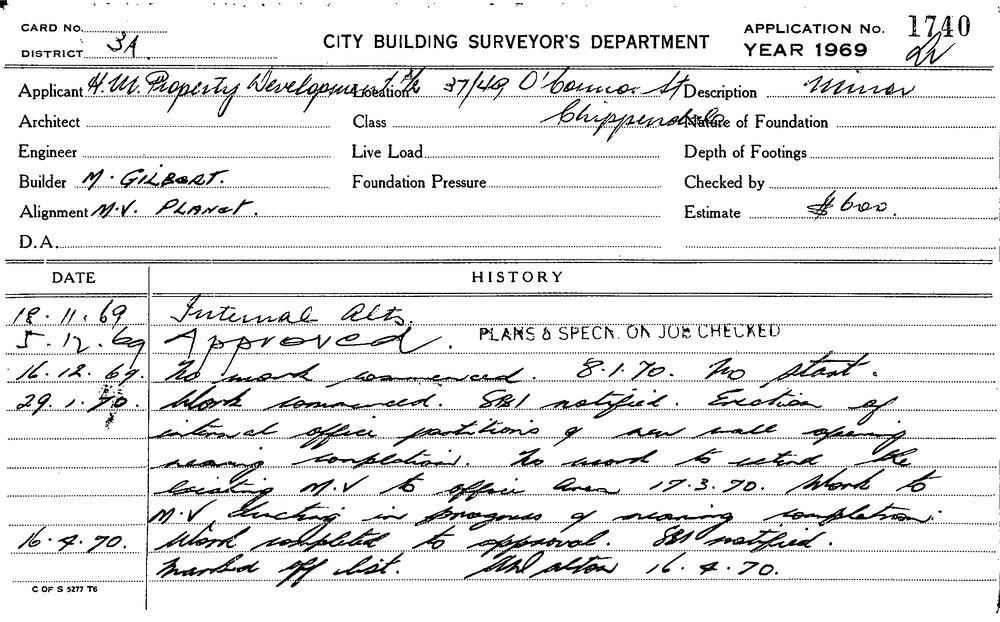 CARD No. APPLICATION No. 1740
DISTRICT 3A CITY BUILDING SURVEYOR'S DEPARTMENT YEAR 1969
Applicant H.M. Property Development P/L Location 37/49 O'Connor St Description Minor
Architect Class Chippendale Nature of Foundation
Engineer Live Load Depth of Footings
Builder M. GILBERT. Foundation Pressure Checked by
Alignment M.V. PLANET. Estimate $600.
D.A.
DATE HISTORY
18.11.69 Internal Alts.
5.12.69 Approved. PLANS & SPECN. ON JOB CHECKED
16.12.69. No work commenced. 8.1.70. No start.
29.1.70. Work commenced. SBI notified. Erection of
internal office partitions & new wall opening
nearing completion. No work to extend the
existing M.V to office area 17.3.70. Work to
M.V ducting in progress & nearing completion.
16.4.70. Work completed to approval. SBI notified.
Marked off list. 16.4.70.
C OF S 5277 T6